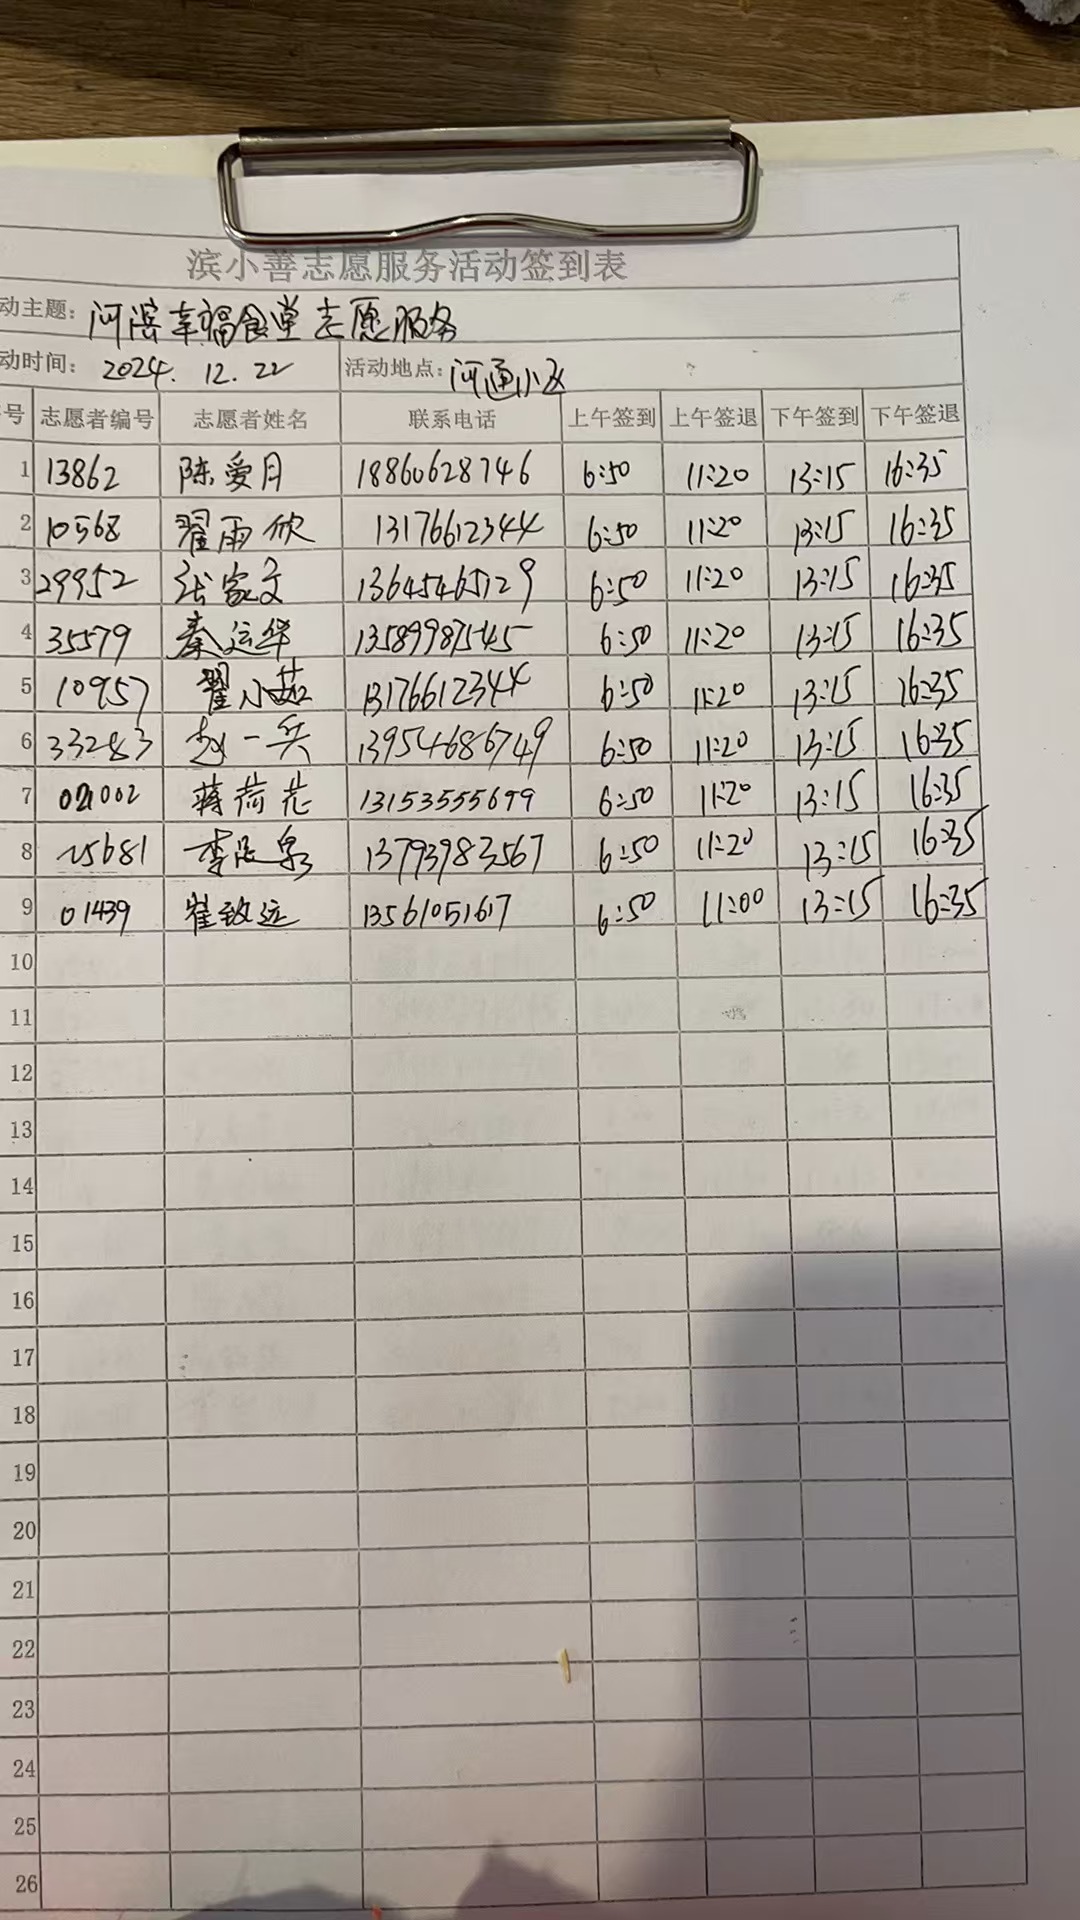 滨小善志愿服务活动签到表
动主题: 河滨幸福食堂志愿服务
动时间: 2024.12.22 活动地点: 河通小区
号 志愿者编号 志愿者姓名 联系电话 上午签到 上午签退 下午签到 下午签退
1 13862 陈爱月 18860628746 6:50 11:20 13:15 16:35
2 10568 翟雨欣 13176612344 6:50 11:20 13:15 16:35
3 29952 张家文 13645465129 6:50 11:20 13:15 16:35
4 35579 秦运华 13589987545 6:50 11:20 13:15 16:35
5 10957 翟小茹 13176612344 6:50 11:20 13:15 16:35
6 33283 赵一兵 13954686749 6:50 11:20 13:15 16:35
7 02002 蒋荷花 13153555699 6:50 11:20 13:15 16:35
8 25681 李 泉 13793983567 6:50 11:20 13:15 16:35
9 01439 崔致远 13561051617 6:50 11:00 13:15 16:35
10
11
12
13
14
15
16
17
18
19
20
21
22
23
24
25
26